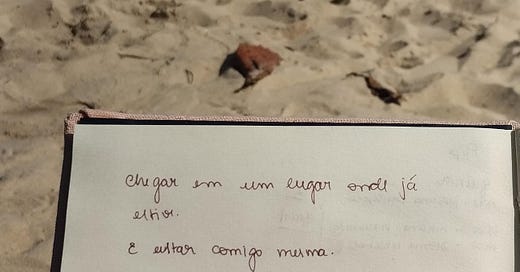 Chegar em um lugar onde já
estive.
E estar comigo mesma.